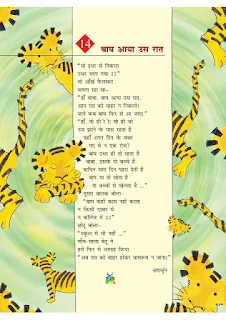 14
बाघ आया उस रात
"वो इधर से निकला
उधर चला गया ऽऽ"
वो आँखें फैलाकर
बतला रहा था-
"हाँ बाबा, बाघ आया उस रात,
आप रात को बाहर न निकलो!
जाने कब बाघ फिर से आ जाए!"
"हाँ, वो ही! वो ही जो
उस झरने के पास रहता है
वहाँ अपन दिन के वक्त
गए थे न एक रोज़?
बाघ उधर ही तो रहता है
बाबा, उसके दो बच्चे हैं
बाघिन सारा दिन पहरा देती है
बाघ या तो सोता है
या बच्चों से खेलता है ..."
दूसरा बालक बोला-
"बाघ कहीं काम नहीं करता
न किसी दफ़्तर में
न कॉलेज में ऽऽ"
छोटू बोला-
"स्कूल में भी नहीं ..."
पाँच-साला बेटू ने
हमें फिर से आगाह किया
"अब रात को बाहर होकर बाथरूम न जाना!"
नागार्जुन